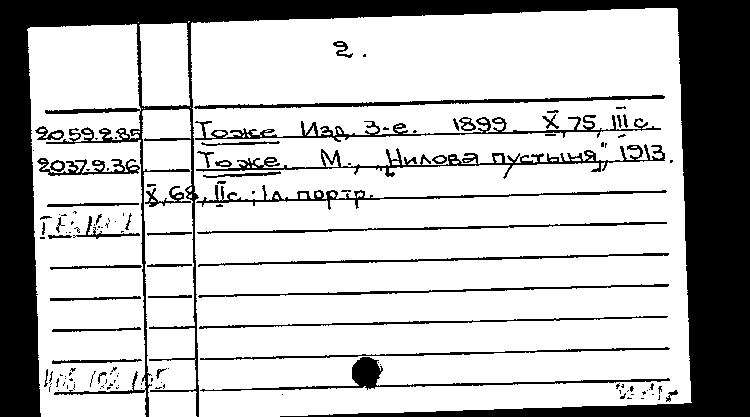 2.
20.59.2.85 Тоже Изд. 3-е. 1899. X, 75, III с.
20.37.9.36 Тоже. М., „Нилова пустыня", 1913.
X, 68, II с.; 1 л. портр.